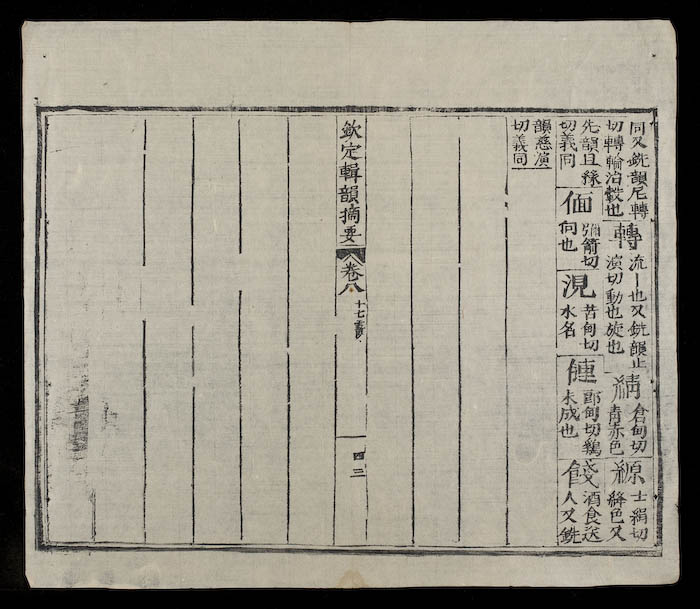 同又銑韻尼轉
切轉輪治轂也
轉
流丨也又銑韻止
演切動也旋也
綪
倉甸切
青赤色
縓
士絹切
絳色又
先韻且緣
切義同
偭
彌箭切
向也
涀
苦甸切
水名
僆
郎甸切鷄
未成也
餞
酒食送
人又銑
韻慈演
切義同
欽定輯韻摘要
卷八
十七霰
四三